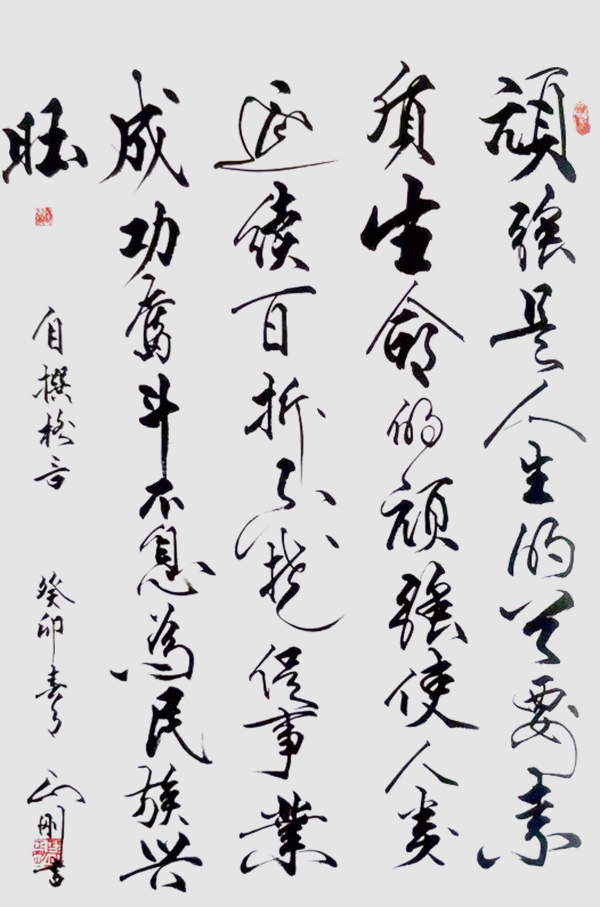 顽强是人生的首要素
质生命的顽强使人类
延续百折不挠促事业
成功奋斗不息为民族兴
旺
自撰格言
癸卯春月
刚书